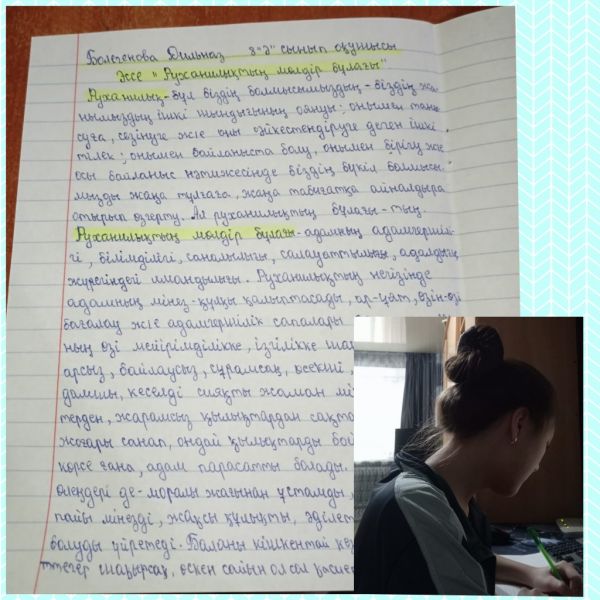 Болегенова Дильназ 8 "д" сынып оқушысы
Эссе "Руханилықтың мөлдір бұлағы"
Руханилық - бұл біздің болмысымыздың - біздің жа-
нымыздың ішкі шындығының оянуы; онымен таны-
суға, сезінуге және оны сәйкестендіруге деген ішкі
тілек; онымен байланыста болу, онымен бірігу және
осы байланыс нәтижесінде біздің бүкіл болмысы-
мызды жаңа тұлғаға, жаңа табиғатқа айналдыра
отырып өзгерту. Ал руханилықтың бұлағы - тың.
Руханилықтың мөлдір бұлағы - адамның адамгершілі-
гі, білімділігі, саналылығы, салауаттылығы, адалдығы,
жүрегіндегі имандылығы. Руханилықтың негізінде
адамның мінез-құлқы қалыптасады, ар-ұят, өзін-өзі
бағалау және адамгершілік сапалары
ның өзі мейірімділікке, ізгілікке
арсыз, байлаусыз, сұрамсақ, өсекші,
дамшы, кеселді сияқты жаман
терден, жарамсыз қылықтардан
жоғары санап, ондай қылықтарды
көрсе ғана, адам парасатты болады.
өлеңдері де - моралы жағынан ұстамды,
пайы мінезді, жақсы құлықты,
болуды үйретеді. Баланы кішкентай
шақырсақ, өскен сайын ол сал